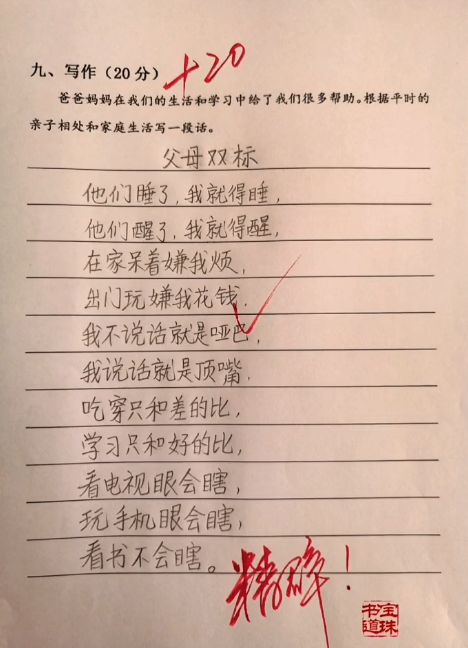 九、写作（20分）
+20
爸爸妈妈在我们的生活和学习中给了我们很多帮助。根据平时的
亲子相处和家庭生活写一段话。
父母双标
他们睡了，我就得睡，
他们醒了，我就得醒，
在家呆着嫌我烦，
出门玩嫌我花钱．
我不说话就是哑巴，
我说话就是顶嘴．
吃穿只和差的比，
学习只和好的比，
看电视眼会瞎，
玩手机眼会瞎，
看书不会瞎。
精辟！
宝珠
书道